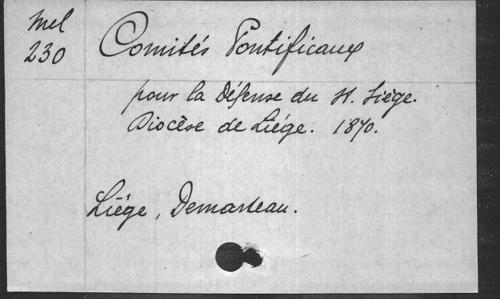 Mel
230
Comités Pontificaux
pour la Défense du St. Siège.
Diocèse de Liége. 1870.
Liége, Demarteau.